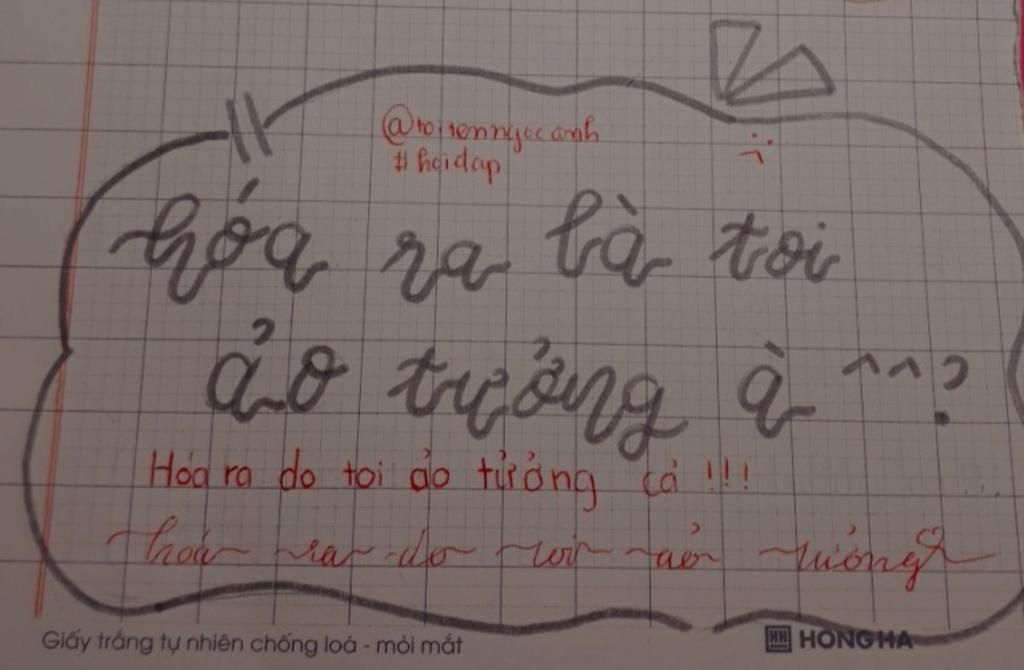 @toitenngocanh
#hoidap
hóa ra là toi
ảo tưởng à ^^?
Hóa ra do toi ảo tưởng cả !!!
hoá ra do toi ảo tưởng
Giấy trắng tự nhiên chống loá - mỏi mắt
HH HONG HA